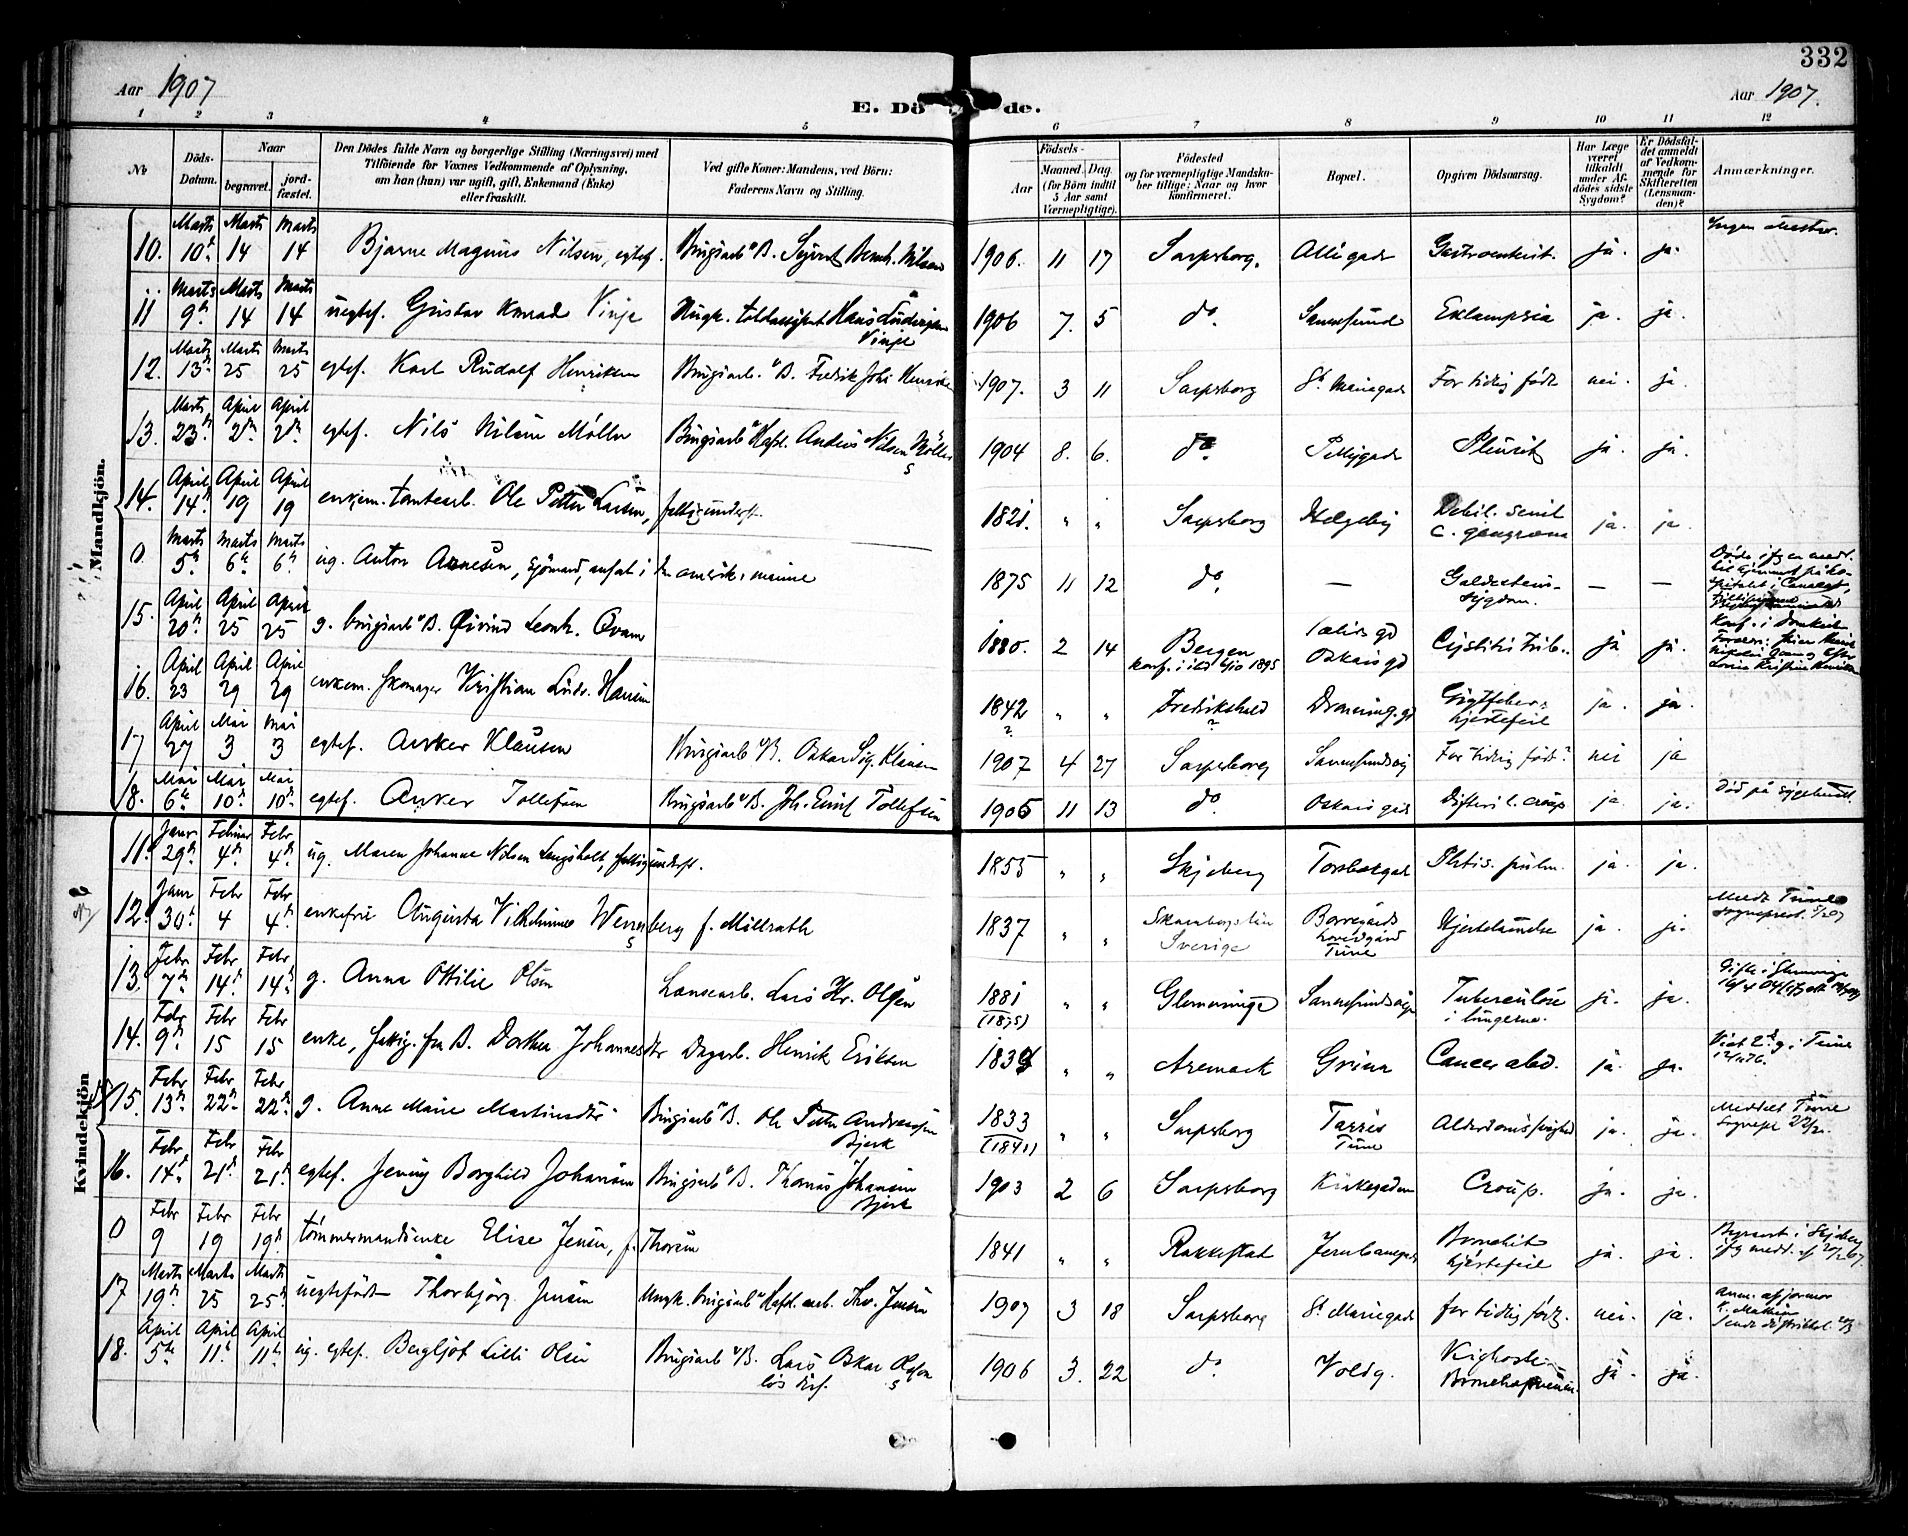 332
Aar 1907
E. Döde.
Aar 1907.
1 2 3 4 5 6 7 8 9 10 11 12
No
Döds-Datum.
Naar
begravet.
jordfæstet.
Den Dödes fulde Navn og borgerlige Stilling (Næringsvei) med
Tilföiende for Voxnes Vedkommende af Oplysning,
om han (hun) var ugift, gift, Enkemand (Enke)
eller fraskilt.
Ved gifte Koner: Mandens, ved Börn:
Faderens Navn og Stilling.
Födsels-
Aar
Maaned. Dag.
(for Börn indtil
5 Aar samt
Værnepligtige).
Födested
og for værnepligtige Mandskaber tillige: Naar og hvor
konfirmeret.
Bopæl.
Opgiven Dödsaarsag.
Har Læge
været
tilkaldt
under Afdödes sidste
Sygdom?
Er Dödsfaldet anmeldt
af Vedkommende for
Skifteretten
(Lensmanden)?
Anmærkninger.
Mandkjön.
10. Marts 10. Marts 14 Marts 14 Bjarne Magnus Nilsen, egtef. Brugsarb. B. Sigurd Bernh. Nilsen 1906. 11 17 Sarpsborg. Gastroenterit. ja. ja.
11 Marts 9. Marts 14 Marts 14 uegtef. Gustav Konrad Vinje Ungk. Hans Ludvigsen Vinje 1906 7. 5 do. Sannesund Eklampsia ja. ja.
12. Marts 13. Marts 25 Marts 25 egtef. Karl Rudolf Henriksen Brugsarb. B. Fredrik Joh. Henriksen 1907. 3 11 Sarpsborg St. Mariegade For tidlig født nei. ja.
13. Marts 23. April 2. April 2. egtef. Nils Nilsen Møller Brugsarb. Hafsl. Anders Nilsen Møller 1904 8. 6. do. Pellygade Pleurit ja. ja.
14. April 14. April 19 April 19 enkem. tomtearb. Ole Petter Larsen, fattigunderst. 1821. " " Sarpsborg Debil. senil ja. ja
0 Marts 5. Marts 6. Marts 6. ug. Anton Arnesen, sjömand, ansat i den amerik. marine 1875 11 12 do. — Galdestens-
sygdom. — —
15. April 20. April 25 April 25 g. brugsarb. B. Øivind Leonh. Qvam 1880. 2 14 Bergen
Oskarsgd ja ja.
16. April 23 April 29 April 29 enkem. skomager Kristian Ludv. Hansen 1842
? " " Fredrikshald
? Dronning.gd Gigtfeber,
hjertefeil ja. ja.
17 April 27 Mai 3 Mai 3 egtef. Anker Klausen Brugsarb. B. Oskar Sig. Klausen 1907 4 27 Sarpsborg Sannesundsvei For tidlig født. nei ja
18. Mai 6. Mai 10. Mai 10. egtef. Anker Tollefsen Brugsarb. B. Joh. Emil Tollefsen 1905 11 13 do. Oskarsgade Difteri l. croup ja ja. Död på sygehuset.
Kvindekjön
11. Januar 29. Februar 4. Febr 4. ug. Maren Johanne Nilsen Langsholt, fattigunderst. 1855 " " Skjeberg Torsbekgade Phtis. pulm. ja. ja.
12. Janu 30. Febr 4 Febr 4. enkefru Augusta Vilhelmine Wennerberg f. Möllrath 1837 " "
Sverige Borregårds
hovedgård
Tune Hjertelamelse ja. ja. Medt Tune
sogneprest. 5/2 07
13. Febr 7. Febr 14. Febr 14. g. Anna Ottilie Olsen Lars Kr. Olsen 1881
(1875) " " Glemminge Sannesundsveien Tuberculose
i lungerne. ja. ja.
14. Febr 9. Febr 15 Febr 15 enke, fattig. fra B. Dorthea Johannesdtr Dagarb. Henrik Eriksen " " Aremark Grina Cancer abd. ja. ja. Viet 2. g. i Tune
15. Febr 13. Febr 22. Febr 22. g. Anne Marie Martinsdtr. Brugsarb. B. Ole Petter Andreassen
Bjerk 1833
(1841) " " Sarpsborg Tarris
Tune Alderdomssvaghed ja. ja. Meddelt Tune
Sognepr. 22/2.
16. Febr 14. Febr 21. Febr 21. egtef. Jenny Borghild Johansen Brugsarb. B. Thomas Johansen
Bjerk 1903 2 6 Sarpsborg Kirkegaden Croup. ja. ja.
0 Febr 9 Febr 19 Febr 19. tömmermandsenke Elise Jensen, f. Thoresen 1841 " " Rakkestad Jernbanegade Bronchit
hjertefeil ja. ja.
17 Marts 19. Marts 25 Marts 25. uegtefödt Thorbjörg Jensen Ungk. brugsarb. Hafsl. Thv. Jensen 1907 3 18 Sarpsborg St. Mariegade for tidlig født. nei. ja. Anm. af jormor
18. April 5. April 11. April 11. ug. egtef. Bergljot Lilli Olsen Brugsarb. B. Lars Oskar Olsen 1906 3. 22 do Voldg. Kighoste-
ja. ja.